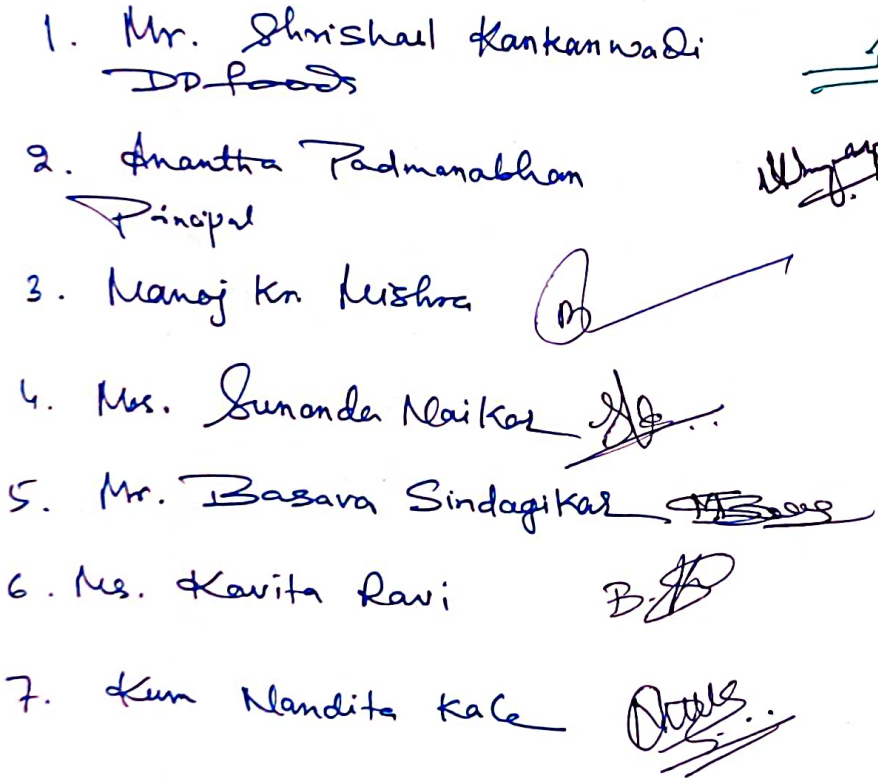 1. Mr. Shrishail Kankanwadi
DD foods
2. Anantha Padmanabhan
Principal
3. Manoj Kr Mishra
4. Mrs. Sunanda Naikar
5. Mr. Basava Sindagikar
6. Ms. Kavita Ravi B.
7. Kum Nandita Kale